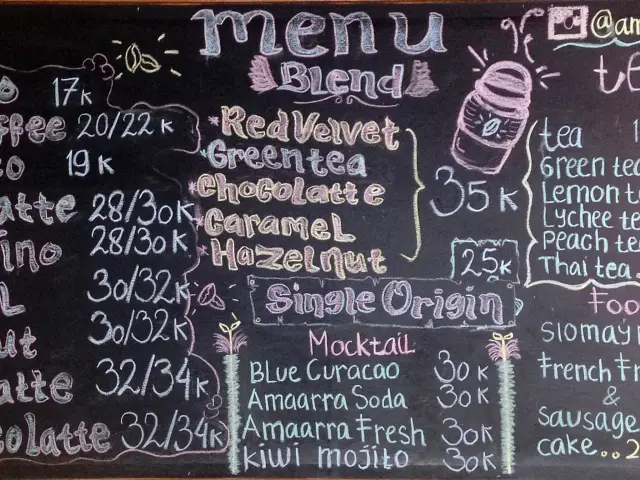 menu
Blend
17K
20/22 K
19 K
28/30K
28/30K
30/32K
30/32K
32/34K
32/34K
Red Velvet
Greentea
Chocolatte
Caramel
Hazelnut
35K
25K
Single Origin
Mocktail
Blue Curacao 30K
Amaarra Soda 30K
Amaarra Fresh 30K
kiwi mojito 30K
tea
Green
Lemon
Lychee
Peach
Thai tea
French
&
Sausage
cake..